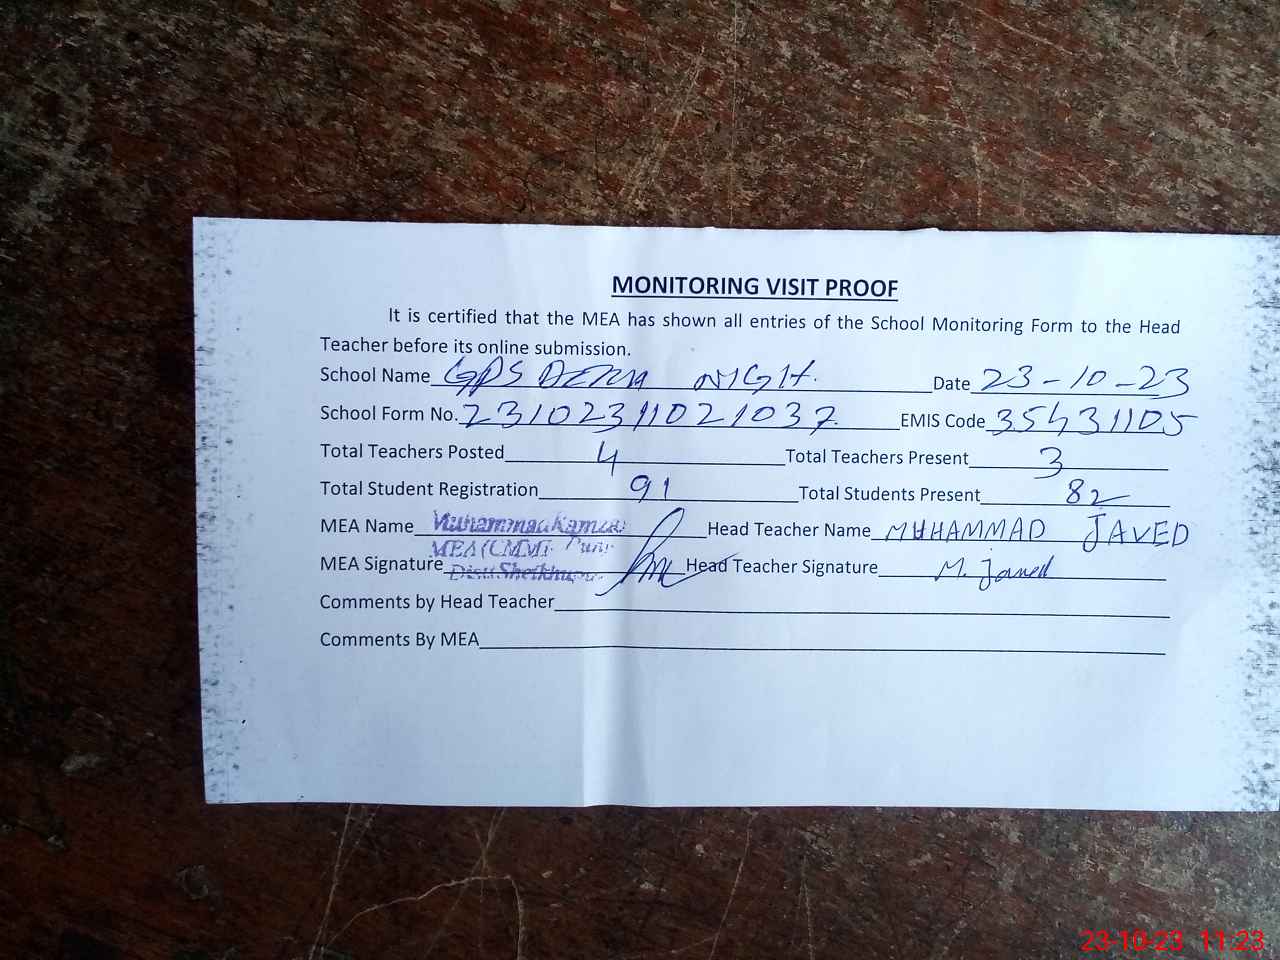 MONITORING VISIT PROOF
It is certified that the MEA has shown all entries of the School Monitoring Form to the Head
Teacher before its online submission.
School Name GPS DERA NIGH. Date 23-10-23
School Form No. 23102311021037 EMIS Code 35431105
Total Teachers Posted 4 Total Teachers Present 3
Total Student Registration 91 Total Students Present 82
MEA Name Muhammad Head Teacher Name MUHAMMAD JAVED
MEA (CMMF
MEA Signature Head Teacher Signature M. Javed
Distt.
Comments by Head Teacher
Comments By MEA
23-10-23 11:23